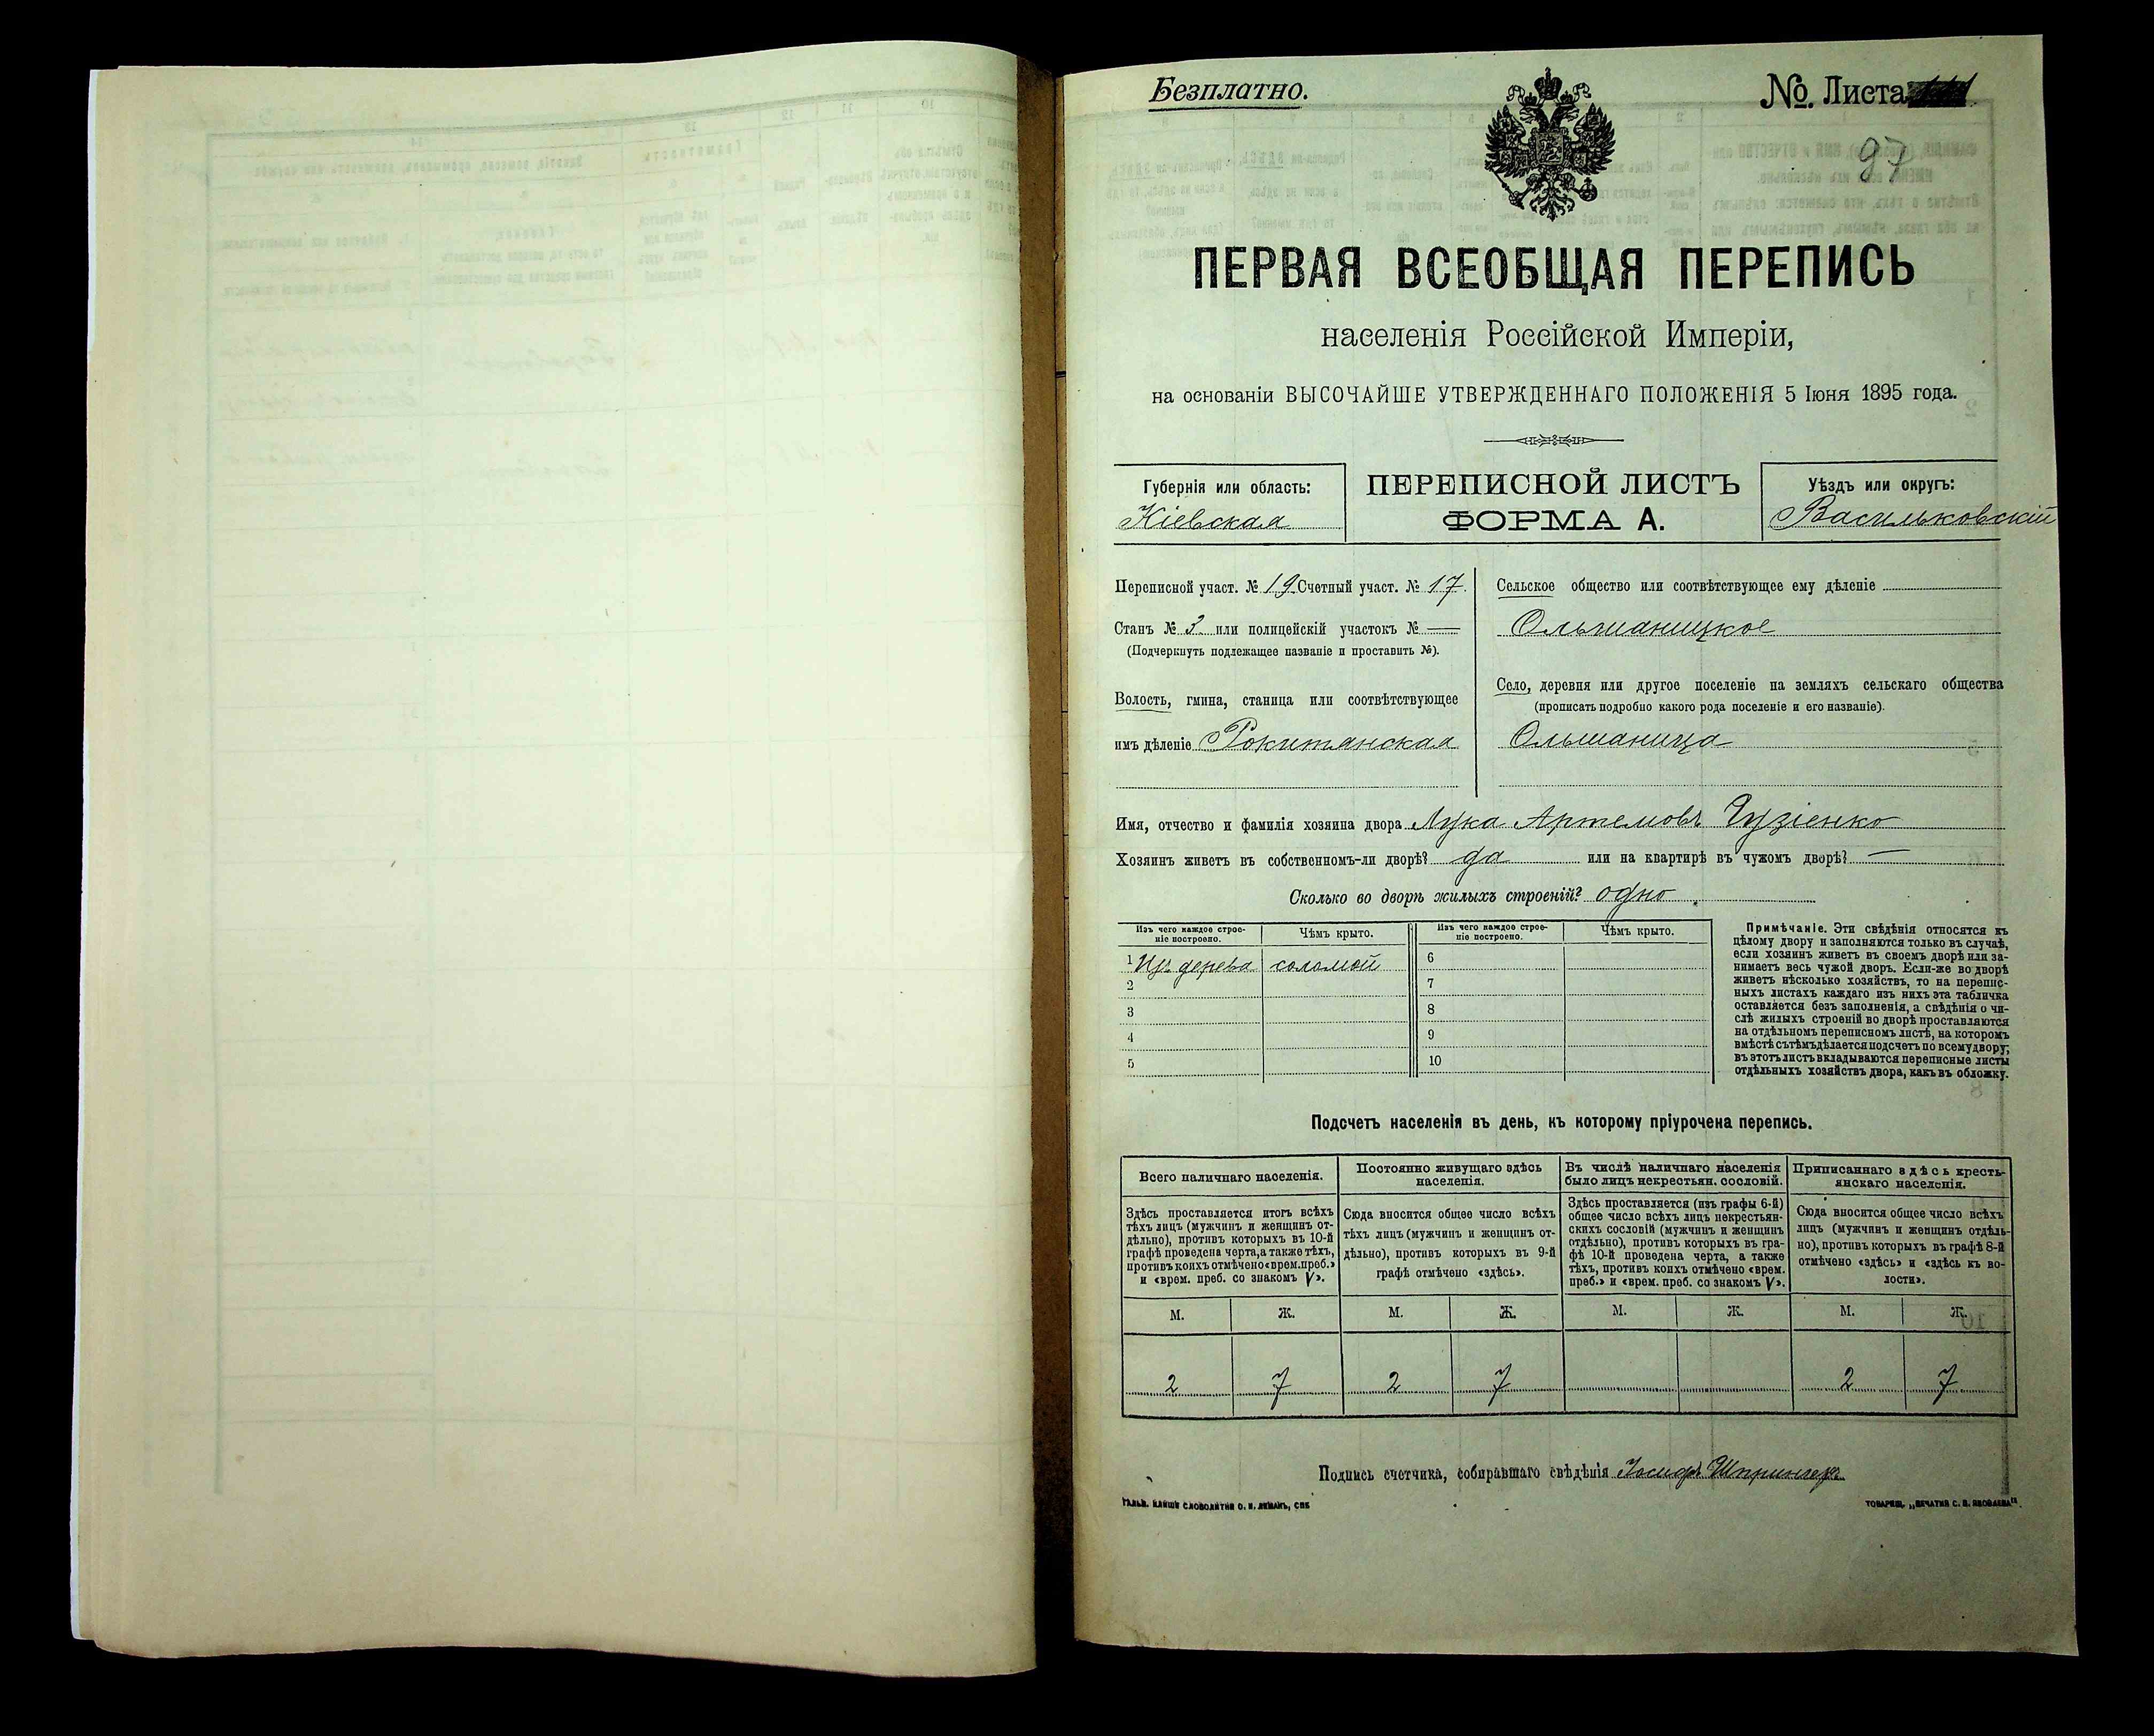 Безплатно.
№. Листа
97
ПЕРВАЯ ВСЕОБЩАЯ ПЕРЕПИСЬ
населенія Россійской Имперіи,
на основаніи ВЫСОЧАЙШЕ УТВЕРЖДЕННАГО ПОЛОЖЕНІЯ 5 Іюня 1895 года.
Губернія или область:
Кіевская
ПЕРЕПИСНОЙ ЛИСТЪ
ФОРМА А.
Уѣздъ или округъ:
Васильковскій
Переписной участ. № 19 Счетный участ. № 17.
Станъ № 3 или полицейскій участокъ № —
(Подчеркнуть подлежащее названіе и проставить №).
Волость, гмина, станица или соотвѣтствующее
имъ дѣленіе Рокитянская
Сельское общество или соотвѣтствующее ему дѣленіе
Ольшаницкое
Село, деревня или другое поселеніе на земляхъ сельскаго общества
(прописать подробно какого рода поселеніе и его названіе).
Ольшаница
Имя, отчество и фамилія хозяина двора Лука Артемовъ Гузіенко
Хозяинъ живетъ въ собственномъ-ли дворѣ? да или на квартирѣ въ чужомъ дворѣ? —
Сколько во дворѣ жилыхъ строеній? одно
Изъ чего каждое строе-
ніе построено.
Чѣмъ крыто.
Изъ чего каждое строе-
ніе построено.
Чѣмъ крыто.
1 Изъ дерева соломой 6
2 7
3 8
4 9
5 10
Примѣчаніе. Эти свѣдѣнія относятся къ
цѣлому двору и заполняются только въ случаѣ,
если хозяинъ живетъ въ своемъ дворѣ или за-
нимаетъ весь чужой дворъ. Если-же во дворѣ
живетъ нѣсколько хозяйствъ, то на перепис-
ныхъ листахъ каждаго изъ нихъ эта табличка
оставляется безъ заполненія, а свѣдѣнія о чи-
слѣ жилыхъ строеній во дворѣ проставляются
на отдѣльномъ переписномъ листѣ, на которомъ
вмѣстѣ съ тѣмъ дѣлается подсчетъ по всему двору;
въ этотъ листъ вкладываются переписные листы
отдѣльныхъ хозяйствъ двора, какъ въ обложку.
Подсчетъ населенія въ день, къ которому пріурочена перепись.
Всего наличнаго населенія.
Здѣсь проставляется итогъ всѣхъ
тѣхъ лицъ (мужчинъ и женщинъ от-
дѣльно), противъ которыхъ въ 10-й
графѣ проведена черта, а также тѣхъ,
противъ коихъ отмѣчено «врем. преб.»
и «врем. преб. со знакомъ V».
Постоянно живущаго здѣсь
населенія.
Сюда вносится общее число всѣхъ
тѣхъ лицъ (мужчинъ и женщинъ от-
дѣльно), противъ которыхъ въ 9-й
графѣ отмѣчено «здѣсь».
Въ числѣ наличнаго населенія
было лицъ некрестьян. сословій.
Здѣсь проставляется (изъ графы 6-й)
общее число всѣхъ лицъ некрестьян-
скихъ сословій (мужчинъ и женщинъ
отдѣльно), противъ которыхъ въ гра-
фѣ 10-й проведена черта, а также
тѣхъ, противъ коихъ отмѣчено «врем.
преб.» и «врем. преб. со знакомъ V».
Приписаннаго здѣсь кресть-
янскаго населенія.
Сюда вносится общее число всѣхъ
лицъ (мужчинъ и женщинъ отдѣль-
но), противъ которыхъ въ графѣ 8-й
отмѣчено «здѣсь» и «здѣсь къ во-
лости».
М. Ж. М. Ж. М. Ж. М. Ж.
2 7 2 7 2 7
Подпись счетчика, собиравшаго свѣдѣнія Іосифъ Шпрингеръ
ГАЛЬВ. КЛИШЕ СЛОВОЛИТНИ О. И. ЛЕМАНЪ, СПБ
ТОВАРИЩ. „ПЕЧАТНЯ С. П. ЯКОВЛЕВА“.